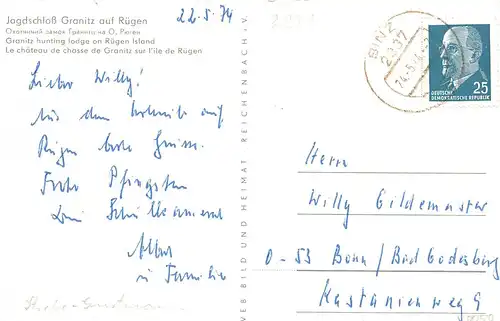 Jagdschloß Granitz auf Rügen
Охотничий замок Гранитц на О, Рюген
Granitz hunting lodge on Rügen Island
Le château de chasse de Granitz sur l'ile de Rügen
22.5.74
Lieber Willy!
Aus dem Urlaub auf
Rügen beste Grüsse.
Frohe Pfingsten
Dein Schulkamerad
Albert
u Familie
VEB BILD UND HEIMAT REICHENBACH i. V.
BINZ
2337
DEUTSCHE
DEMOKRATISCHE REPUBLIK
25
Herrn
Willy Gildemeister
D-53 Bonn/Bad Godesberg
Kastanienweg 9